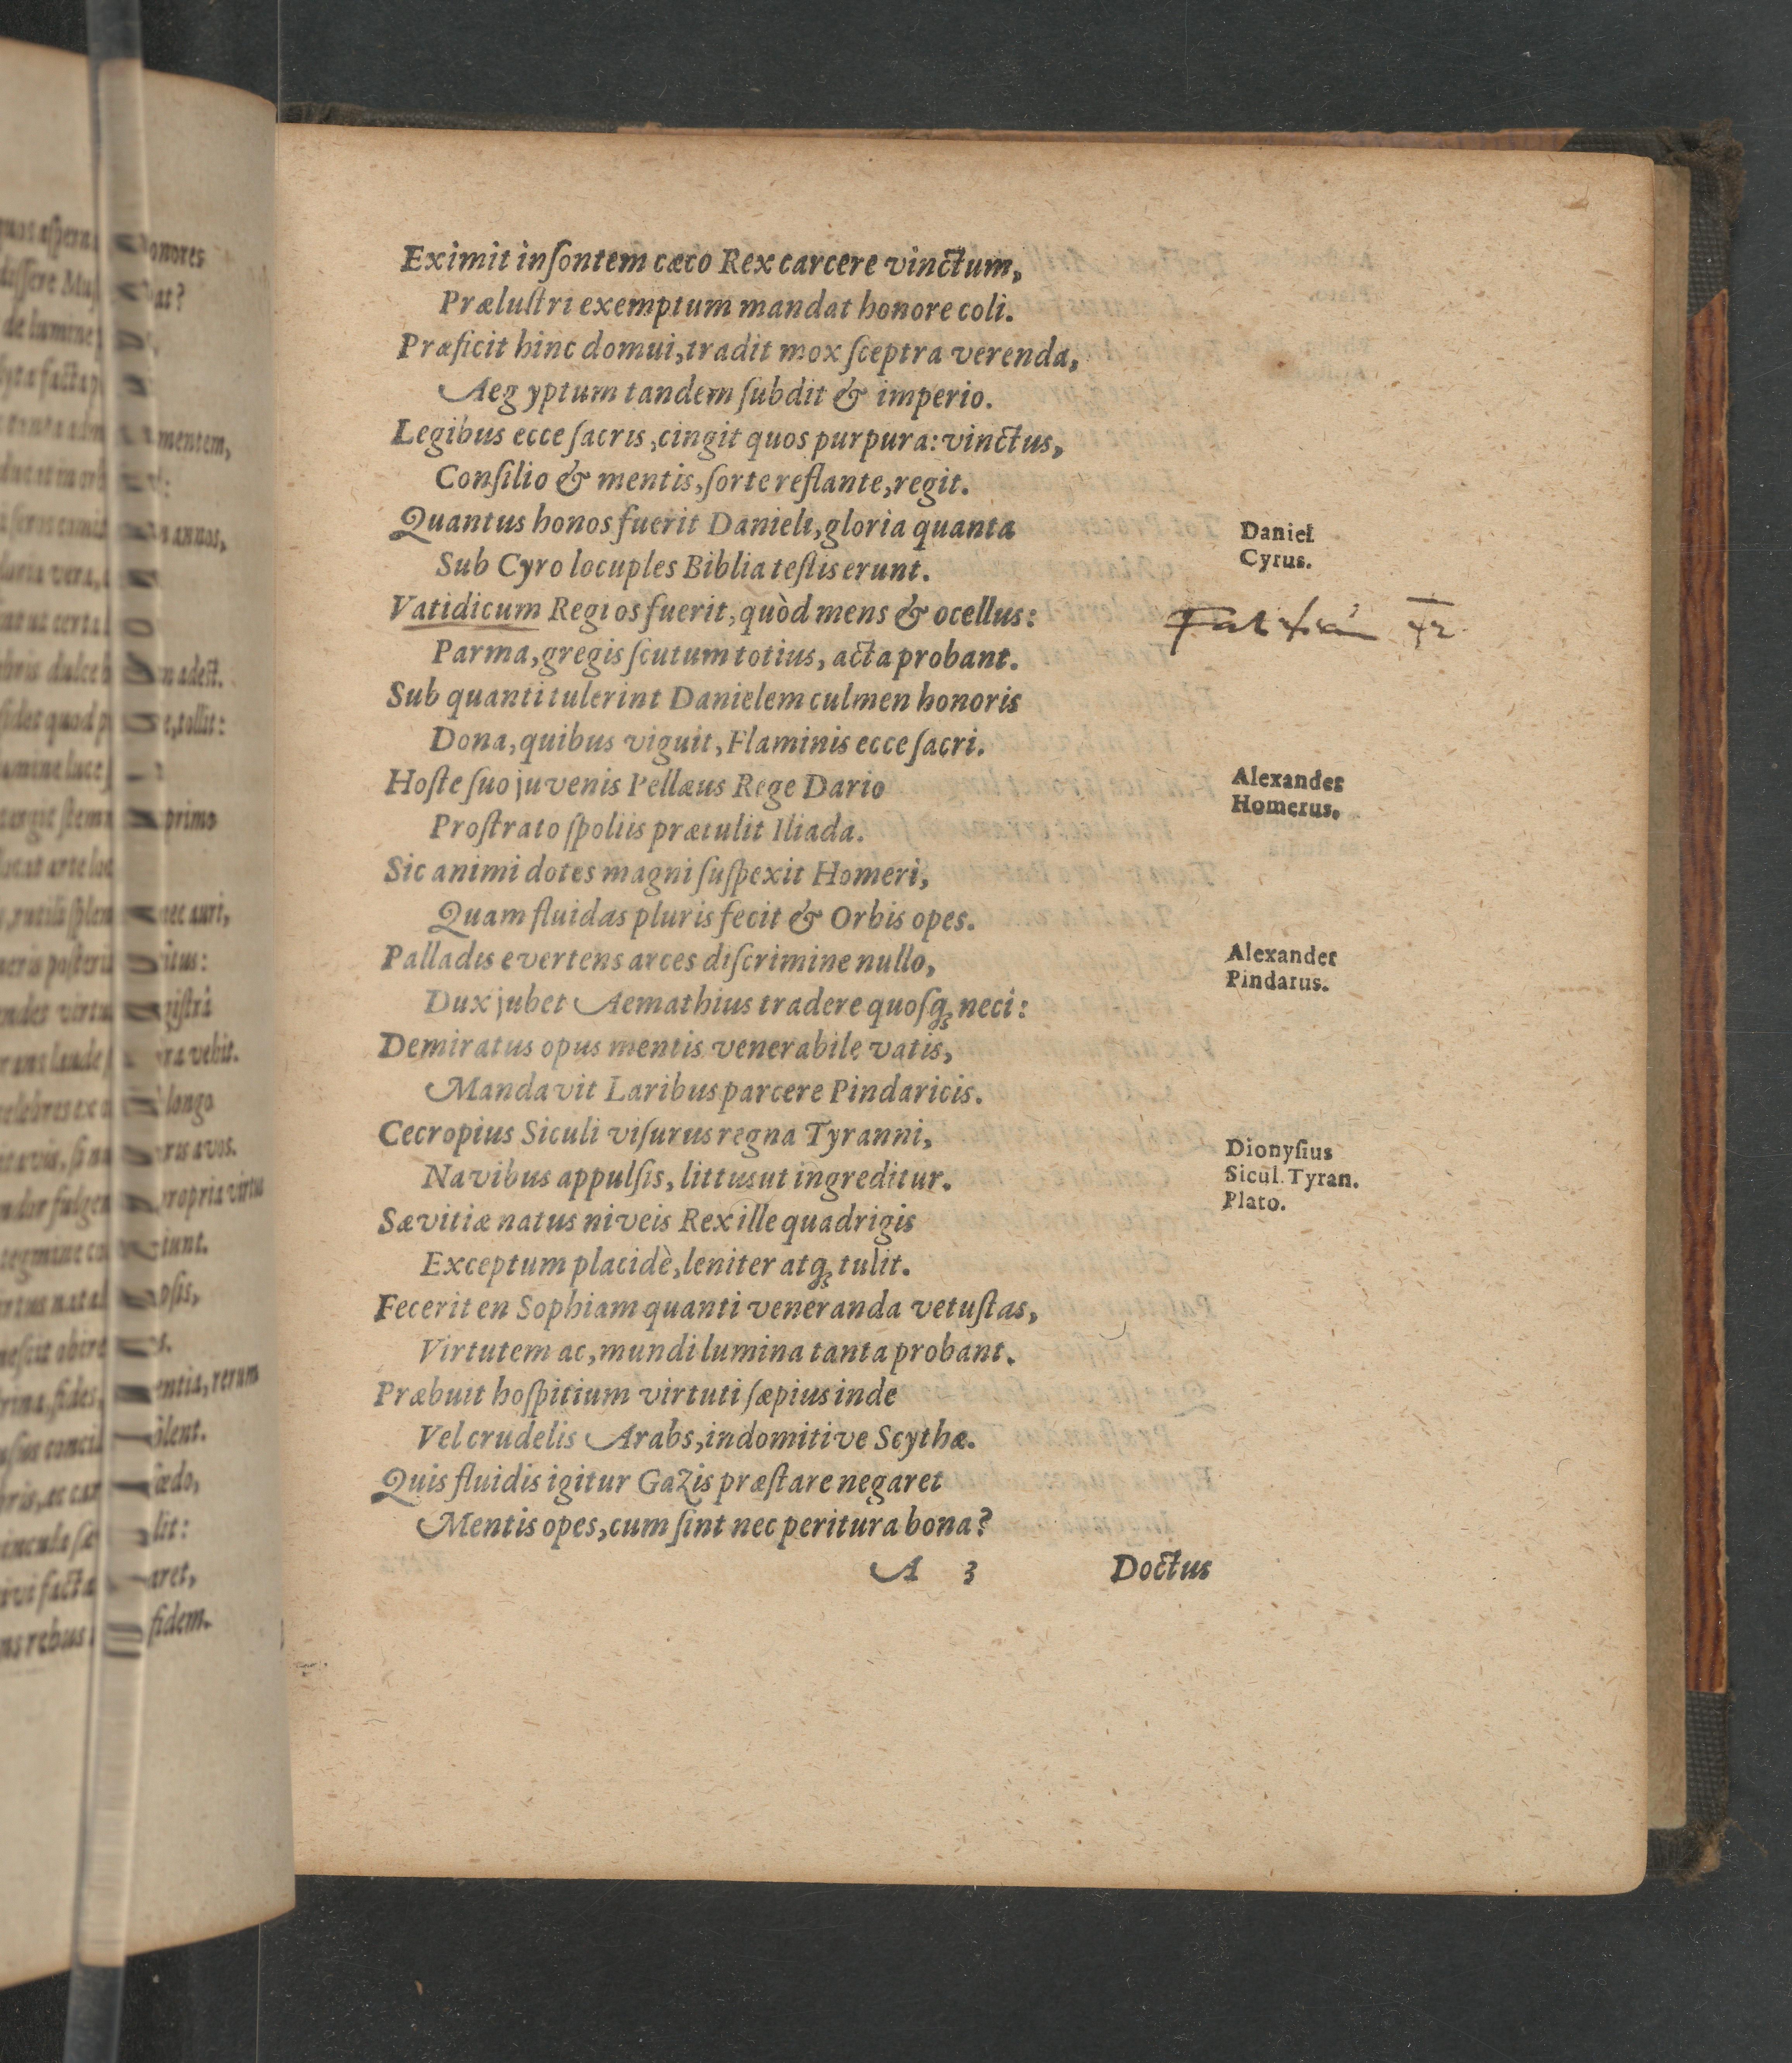 Eximit inſontem cæco Rex carcere vinctum,
Præluſtri exemptum mandat honore coli.
Præficit hinc domui, tradit mox ſceptra verenda,
Aegyptum tandem ſubdit & imperio.
Legibus ecce ſacris, cingit quos purpura: vinctus,
Conſilio & mentis, ſorte reflante, regit.
Quantus honos fuerit Danieli, gloria quanta
Sub Cyro locuples Biblia teſtis erunt.
Vatidicum Regi os fuerit, quòd mens & ocellus:
Parma, gregis ſcutum totius, acta probant.
Sub quanti tulerint Danielem culmen honoris
Dona, quibus viguit, Flaminis ecce ſacri.
Hoſte ſuo juvenis Pellæus Rege Dario
Proſtrato ſpoliis prætulit Iliada.
Sic animi dotes magni ſuſpexit Homeri,
Quam fluidas pluris fecit & Orbis opes.
Palladis evertens arces diſcrimine nullo,
Dux jubet Aemathius tradere quoſq; neci:
Demiratus opus mentis venerabile vatis,
Mandavit Laribus parcere Pindaricis.
Cecropius Siculi viſurus regna Tyranni,
Navibus appulſis, littus ut ingreditur.
Sævitiæ natus niveis Rex ille quadrigis
Exceptum placidè, leniter atq; tulit.
Fecerit en Sophiam quanti veneranda vetuſtas,
Virtutem ac, mundi lumina tanta probant.
Præbuit hoſpitium virtuti ſæpius inde
Vel crudelis Arabs, indomitive Scythæ.
Quis fluidis igitur Gazis præſtare negaret
Mentis opes, cum ſint nec peritura bona?
A 3 Doctus
Daniel
Cyrus.
Alexander
Homerus.
Alexander
Pindarus.
Dionyſius
Sicul. Tyran.
Plato.
onores
at?
mentem,
annos,
n adeſt.
e, tollit:
primo
nec auri,
itus:
giſtri
ra vehit.
longo
ris avos.
propria virtus
tiunt.
pſis,
entia, rerum
olent.
lit:
aret,
fidem.